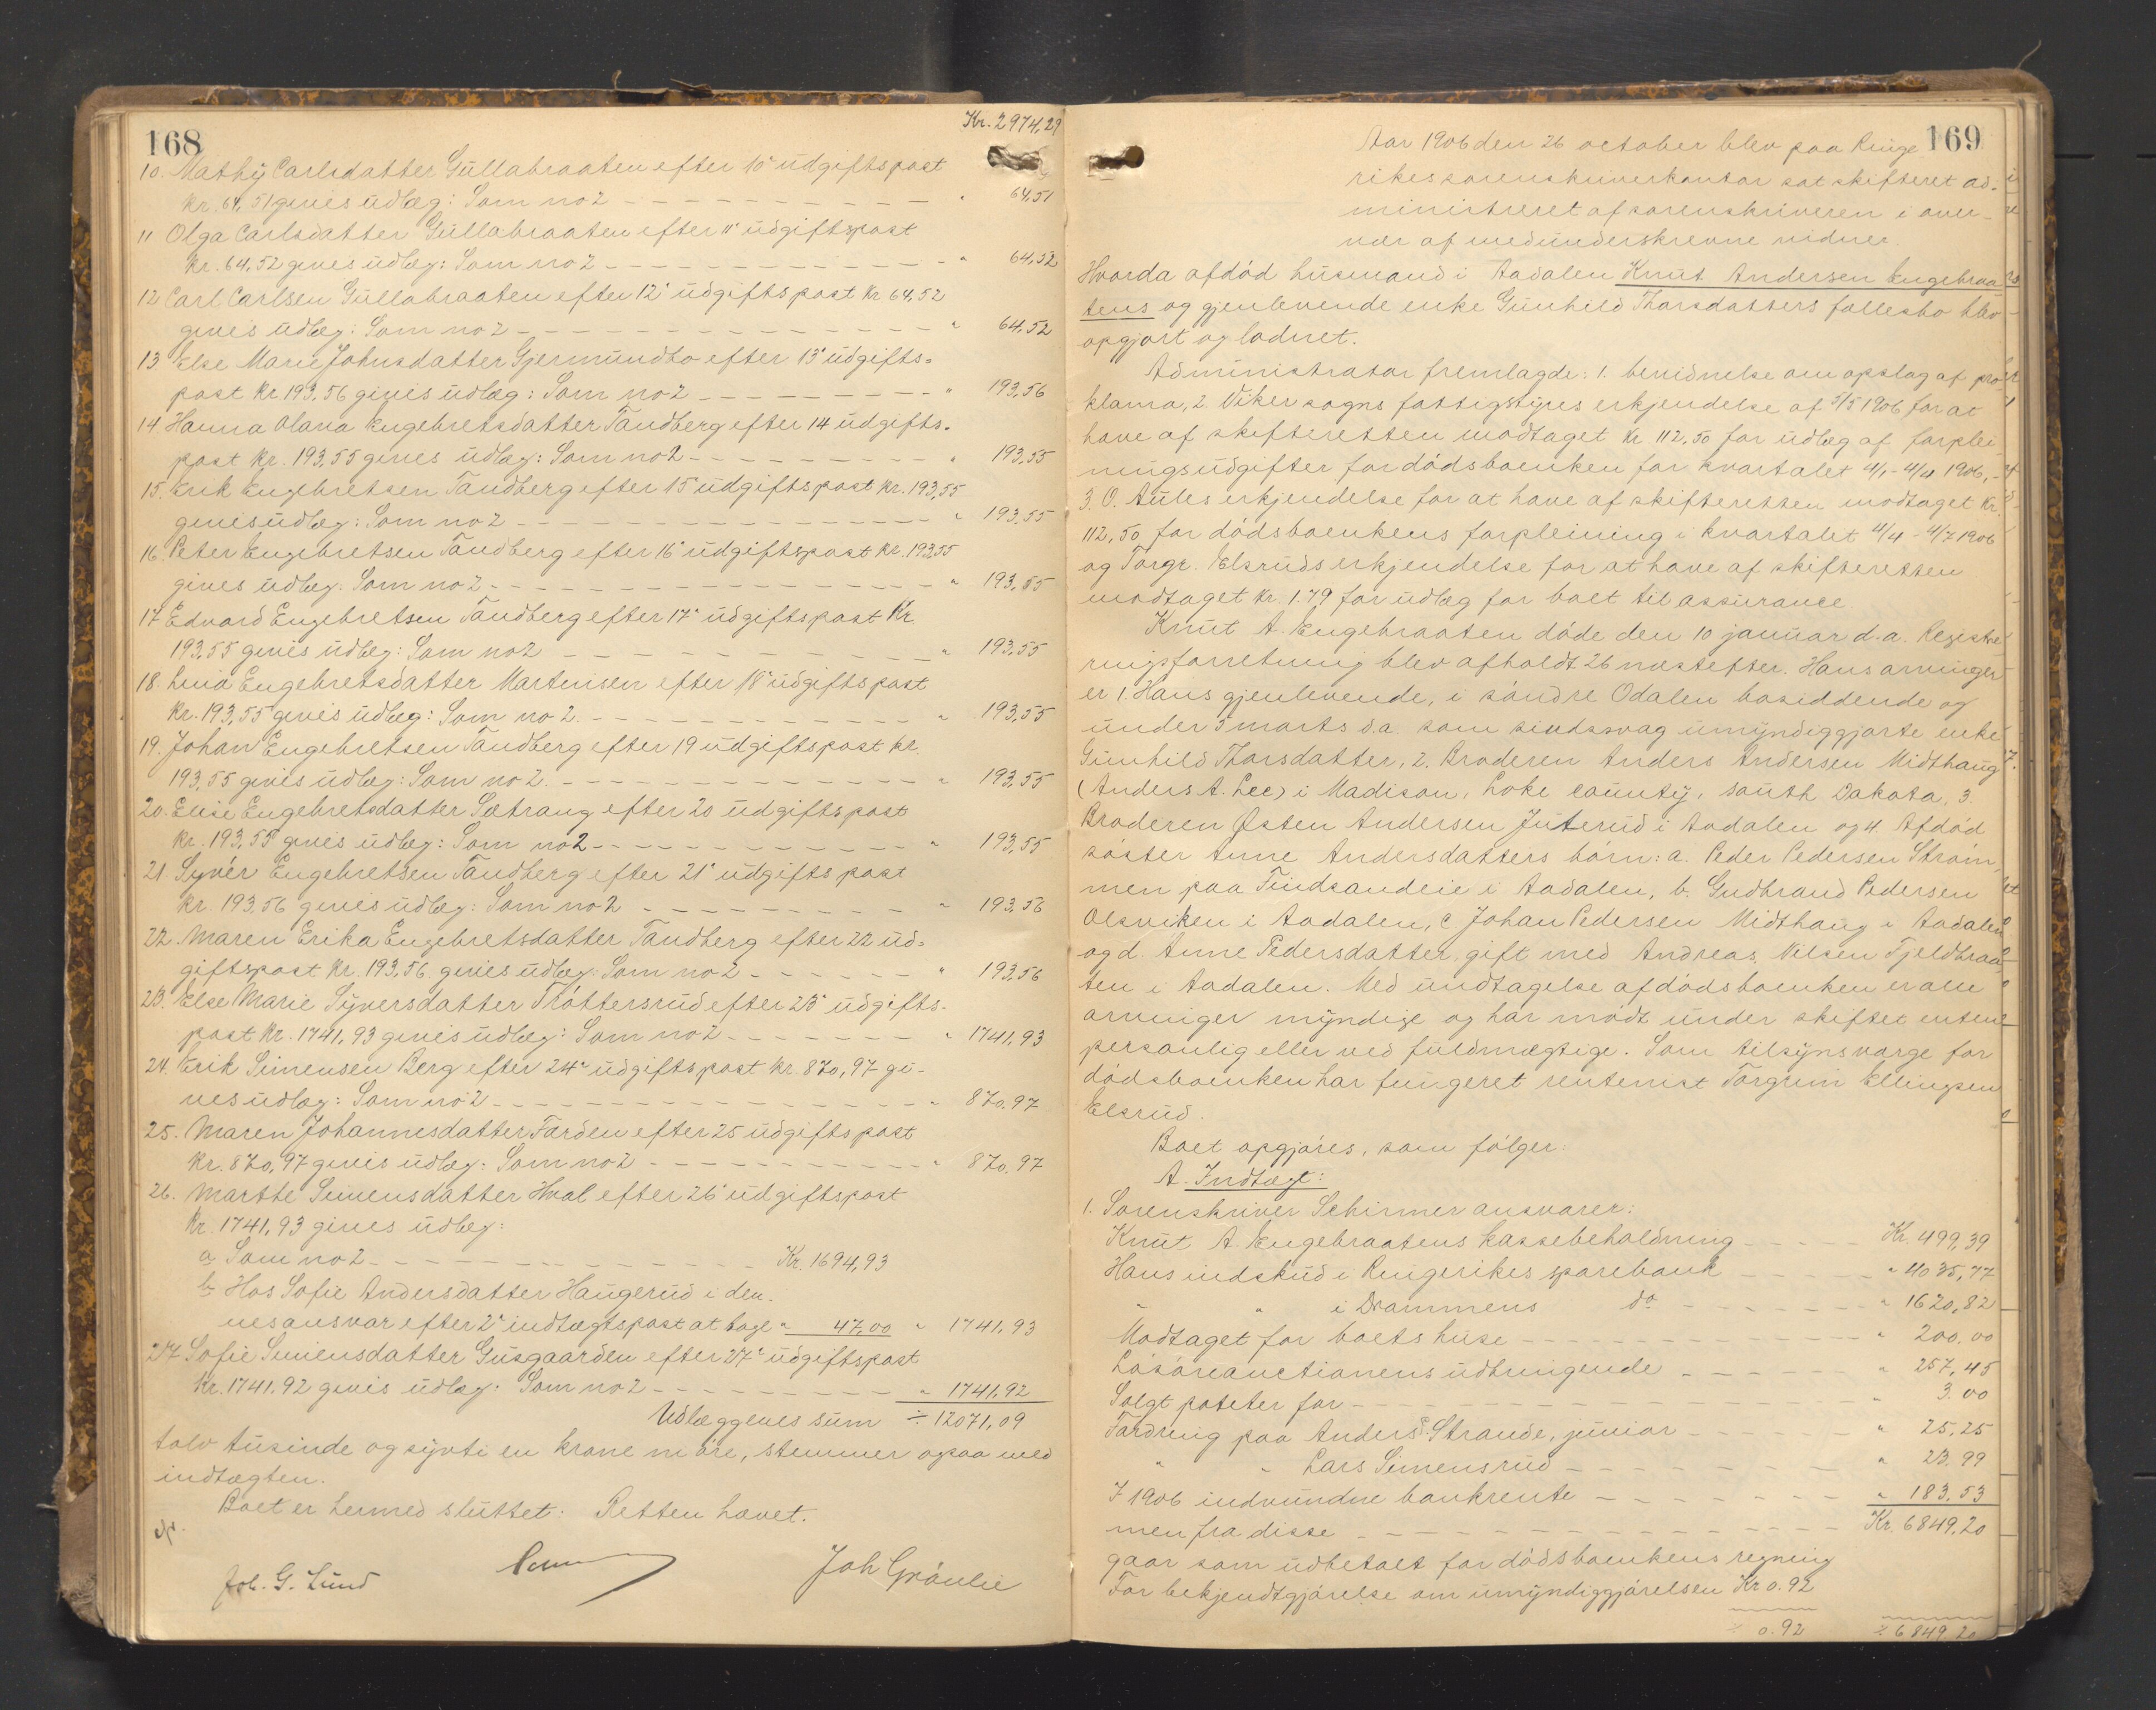 168
Kr. 2974,29
10. Mathy Carlsdatter Gullabraaten efter 10' udgiftspost
kr. 64,51 gives udlæg: Som no 2 - - - " 64,51
11 Olga Carlsdatter Gullabraaten efter 11' udgiftspost
kr. 64,52 gives udlæg: Som no 2 - - - " 64,52
12 Carl Carlsen Gullabraaten efter 12' udgiftspost kr 64,52
gives udlæg: Som no 2 - - - " 64,52
13 Else Marie Johnsdatter Gjermundbo efter 13' udgifts=
post kr 193,56 gives udlæg: Som no 2 - - - " 193,56
14 Hanna Olava Engebretsdatter Tandberg efter 14 udgifts=
post kr. 193,55 gives udlæg: Som no 2 - - - " 193,55
15. Erik Engebretsen Tandberg efter 15 udgiftspost kr. 193,55
gives udlæg: Som no 2 - - - " 193,55
16. Peter Engebretsen Tandberg efter 16' udgiftspost kr. 193,55
gives udlæg. Som no 2 - - - " 193,55
17 Edvard Engebretsen Tandberg efter 17' udgiftspost Kr.
193,55 gives udlæg: Som no 2 - - - " 193,55
18. Lina Engebretsdatter Martinsen efter 18' udgiftspost
kr. 193,55 gives udlæg: Som no 2. - - - " 193,55
19. Johan Engebretsen Tandberg efter 19 udgiftspost kr.
193,55 gives udlæg: Som no 2. - - - " 193,55
20. Elise Engebretsdatter Sætrang efter 20 udgiftspost
kr. 193,55 gives udlæg: Som no 2 - - - " 193,55
21. Syver Engebretsen Tandberg efter 21' udgiftspost
kr. 193,56 gives udlæg: Som no 2 - - - " 193,56
22. Maren Erika Engebretsdatter Tandberg efter 22 ud=
giftspost kr. 193,56 gives udlæg: Som no 2 - - - " 193,56
23. Else Marie Syversdatter Tróttersrud efter 23' udgifts-
post kr. 1741,93 gives udlæg: Som no 2 - - - " 1741,93
24. Erik Simensen Berg efter 24' udgiftspost kr. 870,97 gi-
ves udlæg: Som no 2 - - - " 870,97
25. Maren Johannesdatter Færden efter 25 udgiftspost
kr. 870,97 gives udlæg: Som no 2 - - - " 870,97
26. Marthe Simensdatter Hval efter 26' udgiftspost
kr. 1741,93 gives udlæg:
a, Som no 2 - - - Kr. 1694,93
b, Hos Sofie Andersdatter Haugerud i den-
nes ansvar efter 2' indtægtspost at tage " 47,00 " 1741,93
27 Sofie Simensdatter Gusgaarden efter 27' udgiftspost
kr. 1741,92 gives udlæg. Som no 2 - - - " 1741,92
Udlæggenes sum ÷ 12071,09
tolv tusinde og sytti en krone ni øre, stemmer ogsaa med
indtægten.
Boet er hermed sluttet: Retten hævet.
Joh. G. Lund
Joh Grönlie
169
Aar 1906 den 26 october blev paa Ringe
rikes sorenskriverkontor sat skifteret ad=
ministreret af sorenskriveren i over-
vær af medunderskrevne vidner.
Hvorda afdöd husmand i Aadalen Knut Andersen Engebraa
tens og gjenlevende enke Gunhild Thorsdatters fællesbo blev
opgjort og loddnet.
Administrator fremlagde: 1. bevidnelse om opslag af pro
klama, 2. Viker sogns fattigstyres erkjendelse af 5/5 1906 for at
have af skifteretten modtaget kr 112,50 for udlæg af forplei
ningsudgifter for dödsboenken for kvartalet 11/1 - 11/4 1906,
3. O. Aules erkjendelse for at have af skifteretten modtaget kr.
112,50 for dödsboenkens forpleining i kvartalet 11/4 - 11/7 1906
og Torgr. Elsruds erkjendelse for at have af skifteretten
modtaget kr. 1.79 for udlæg for boet til assurance
Knut A. Engebraaten döde den 10 januar d.a. Registre
ringsforretning blev afholdt 26 næstefter. Hans arvinger
er 1. Hans gjenlevende, i söndre Odalen bosiddende og
under 5 marts d.a. som sindssvag umyndiggjorte enke
Gunhild Thorsdatter, 2. Broderen Anders Andersen Midthaug
(Anders A. Lee) i Madison, Loke county, south Dakota, 3.
Broderen Østen Andersen Juterud i Aadalen og 4. Afdöd
söster Anne Andersdatters börn: a. Peder Pedersen Ström,
men paa Findsandeie i Aadalen, b. Gudbrand Pedersen
Olsviken i Aadalen, c Johan Pedersen Midthaug i Aadalen
og d. Anne Pedersdatter, gift med Andreas Nilsen Fjeldbraa
ten i Aadalen. Med undtagelse af dödsboenken er alle
arvinger myndige og har mödt under skiftet enten
personlig eller ved fuldmægtige. Som tilsynsværge for
dödsboenken har fungeret rentenist Torgrim Ellingsen
Elsrud.
Boet opgjöres, som fölger:
A. Indtægt:
1. Sorenskriver Schirmer ansvarer:
Knut A. Engebraatens kassebeholdning - - - Kr. 499,39
Hans indskud i Ringerikes sparebank - - - " 4035,77
" " i Drammens do - - - " 1620,82
Modtaget for boets huse - - - " 200.00
Lösöreauctionens udbringende - - - " 257,45
Solgt poteter for - - - " 3.00
Fordring paa Anders P. Strande, junior - - - " 25,25
" " Lars Simensrud - - - " 23.99
I 1906 indvundne bankrente - - - " 183,53
men fra disse - - - Kr. 6849,20
gaar som udbetalt for dödsboenkens regning
For bekjendtgjörelse om umyndiggjörelsen Kr 0.92
÷ 0.92 ÷ 6849.20